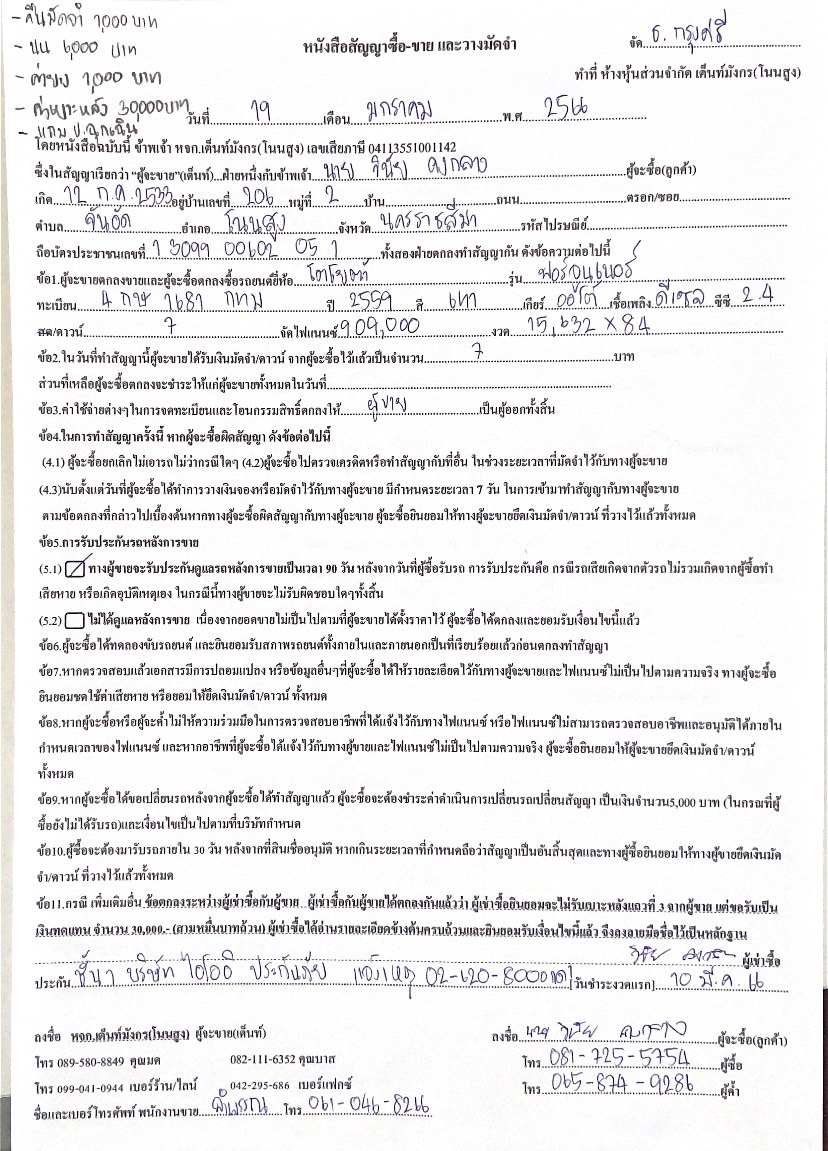 - คืนมัดจำ 1,000 บาท
- ปน 6,000 บาท
- ค่ายาง 1,000 บาท
- ค่าเบาะหลัง 30,000 บาท
- แถม ป.ฉุกเฉิน
หนังสือสัญญาซื้อ-ขาย และวางมัดจำ
จัด ธ. กรุงศรี
ทำที่ ห้างหุ้นส่วนจำกัด เต็นท์มังกร(โนนสูง)
วันที่ 19 เดือน มกราคม พ.ศ 2566
โดยหนังสือฉบับนี้ ข้าพเจ้า หจก.เต็นท์มังกร(โนนสูง) เลขเสียภาษี 04113551001142
ซึ่งในสัญญาเรียกว่า "ผู้จะขาย"(เต็นท์) ฝ่ายหนึ่งกับข้าพเจ้า นาย วินัย คงกลาง ผู้จะซื้อ(ลูกค้า)
เกิด 12 ก.ค. 2533 อยู่บ้านเลขที่ 206 หมู่ที่ 2 บ้าน ถนน ตรอก/ซอย
ตำบล จันอัด อำเภอ โนนสูง จังหวัด นครราชสีมา รหัสไปรษณีย์
ถือบัตรประชาชนเลขที่ 1 3099 00602 05 1 ทั้งสองฝ่ายตกลงทำสัญญากัน ดังข้อความต่อไปนี้
ข้อ1.ผู้จะขายตกลงขายและผู้จะซื้อตกลงซื้อรถยนต์ยี่ห้อ โตโยต้า รุ่น ฟอร์จูนเนอร์
ทะเบียน 4 กษ 1681 กทม ปี 2559 สี เทา เกียร์ ออโต้ เชื้อเพลิง ดีเซล ซีซี 2.4
สด/ดาวน์ 7 จัดไฟแนนซ์ 909,000 งวด 15,632 x 84
ข้อ2.ในวันที่ทำสัญญานี้ผู้จะขายได้รับเงินมัดจำ/ดาวน์ จากผู้จะซื้อไว้แล้วเป็นจำนวน 7 บาท
ส่วนที่เหลือผู้จะซื้อตกลงจะชำระให้แก่ผู้จะขายทั้งหมดในวันที่
ข้อ3.ค่าใช้จ่ายต่างๆในการจดทะเบียนและโอนกรรมสิทธิ์ตกลงให้ ผู้ขาย เป็นผู้ออกทั้งสิ้น
ข้อ4.ในการทำสัญญาครั้งนี้ หากผู้จะซื้อผิดสัญญา ดังข้อต่อไปนี้
(4.1) ผู้จะซื้อยกเลิกไม่เอารถไม่ว่ากรณีใดๆ (4.2)ผู้จะซื้อไปตรวจเครดิตหรือทำสัญญากับที่อื่น ในช่วงระยะเวลาที่มัดจำไว้กับทางผู้จะขาย
(4.3)นับตั้งแต่วันที่ผู้จะซื้อได้ทำการวางเงินจองหรือมัดจำไว้กับทางผู้จะขาย มีกำหนดระยะเวลา 7 วัน ในการเข้ามาทำสัญญากับทางผู้จะขาย
ตามข้อตกลงที่กล่าวไปเบื้องต้นหากทางผู้จะซื้อผิดสัญญากับทางผู้จะขาย ผู้จะซื้อยินยอมให้ทางผู้จะขายยึดเงินมัดจำ/ดาวน์ ที่วางไว้แล้วทั้งหมด
ข้อ5.การรับประกันรถหลังการขาย
(5.1) ทางผู้ขายจะรับประกันดูแลรถหลังการขายเป็นเวลา 90 วัน หลังจากวันที่ผู้ซื้อรับรถ การรับประกันคือ กรณีรถเสียเกิดจากตัวรถไม่รวมเกิดจากผู้ซื้อทำ
เสียหาย หรือเกิดอุบัติเหตุเอง ในกรณีนี้ทางผู้ขายจะไม่รับผิดชอบใดๆทั้งสิ้น
(5.2) ไม่ได้ดูแลหลังการขาย เนื่องจากยอดขายไม่เป็นไปตามที่ผู้จะขายได้ตั้งราคาไว้ ผู้จะซื้อได้ตกลงและยอมรับเงื่อนไขนี้แล้ว
ข้อ6.ผู้จะซื้อได้ทดลองขับรถยนต์ และยินยอมรับสภาพรถยนต์ทั้งภายในและภายนอกเป็นที่เรียบร้อยแล้วก่อนตกลงทำสัญญา
ข้อ7.หากตรวจสอบแล้วเอกสารมีการปลอมแปลง หรือข้อมูลอื่นๆที่ผู้จะซื้อได้ให้รายละเอียดไว้กับทางผู้จะขายและไฟแนนซ์ไม่เป็นไปตามความจริง ทางผู้จะซื้อ
ยินยอมชดใช้ค่าเสียหาย หรือยอมให้ยึดเงินมัดจำ/ดาวน์ ทั้งหมด
ข้อ8.หากผู้จะซื้อหรือผู้จะค้ำไม่ให้ความร่วมมือในการตรวจสอบอาชีพที่ได้แจ้งไว้กับทางไฟแนนซ์ หรือไฟแนนซ์ไม่สามารถตรวจสอบอาชีพและอนุมัติได้ภายใน
กำหนดเวลาของไฟแนนซ์ และหากอาชีพที่ผู้จะซื้อได้แจ้งไว้กับทางผู้ขายและไฟแนนซ์ไม่เป็นไปตามความจริง ผู้จะซื้อยินยอมให้ผู้จะขายยึดเงินมัดจำ/ดาวน์
ทั้งหมด
ข้อ9.หากผู้จะซื้อได้ขอเปลี่ยนรถหลังจากผู้จะซื้อได้ทำสัญญาแล้ว ผู้จะซื้อจะต้องชำระค่าดำเนินการเปลี่ยนรถเปลี่ยนสัญญา เป็นเงินจำนวน5,000 บาท (ในกรณีที่ผู้
ซื้อยังไม่ได้รับรถ)และเงื่อนไขเป็นไปตามที่บริษัทกำหนด
ข้อ10.ผู้ซื้อจะต้องมารับรถภายใน 30 วัน หลังจากที่สินเชื่ออนุมัติ หากเกินระยะเวลาที่กำหนดถือว่าสัญญาเป็นอันสิ้นสุดและทางผู้ซื้อยินยอมให้ทางผู้ขายยึดเงินมัด
จำ/ดาวน์ ที่วางไว้แล้วทั้งหมด
ข้อ11.กรณี เพิ่มเติมอื่น ข้อตกลงระหว่างผู้เช่าซื้อกับผู้ขาย ผู้เช่าซื้อกับผู้ขายได้ตกลงกันแล้วว่า ผู้เช่าซื้อยินยอมจะไม่รับเบาะหลังแถวที่ 3 จากผู้ขาย แต่ขอรับเป็น
เงินทดแทน จำนวน 30,000.- (สามหมื่นบาทถ้วน) ผู้เช่าซื้อได้อ่านรายละเอียดข้างต้นครบถ้วนและยินยอมรับเงื่อนไขนี้แล้ว จึงลงลายมือชื่อไว้เป็นหลักฐาน
วินัย คงกลาง ผู้เช่าซื้อ
ประกัน ชั้น 1 บริษัท ไอโออิ ประกันภัย แจ้งเหตุ 02-620-8000 [วันชำระงวดแรก] 10 มี.ค. 66
ลงชื่อ หจก.เต็นท์มังกร(โนนสูง) ผู้จะขาย(เต็นท์)
ลงชื่อ นาย วินัย คงกลาง ผู้จะซื้อ(ลูกค้า)
โทร 089-580-8849 คุณมด 082-111-6352 คุณบาส
โทร 081-725-5754 ผู้ซื้อ
โทร 099-041-0944 เบอร์ร้าน/ไลน์ 042-295-686 เบอร์แฟกซ์
โทร 065-874-9286 ผู้ค้ำ
ชื่อและเบอร์โทรศัพท์ พนักงานขาย ลำพรรณ โทร 061-046-8266